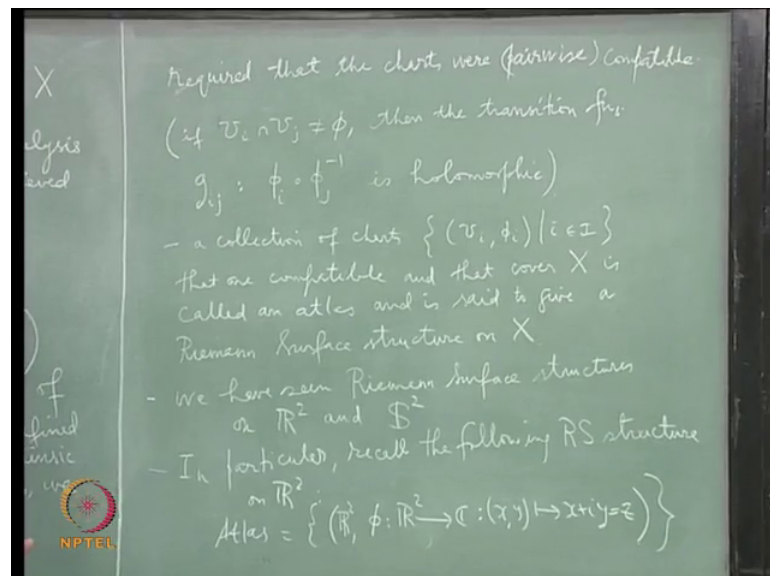 X
alysis
eved
of
fined
insic
, we
Required that the charts were (pairwise) compatible.
(if U_i ∩ U_j ≠ φ, then the transition fns.
g_ij : φ_i ∘ φ_j^{-1} is holomorphic)
- a collection of charts { (U_i, φ_i) | i ∈ I }
that are compatible and that cover X is
called an atlas and is said to give a
Riemann Surface structure on X
- We have seen Riemann Surface structures
on ℝ² and 𝕊²
- In particular, recall the following RS structure
on ℝ² :
Atlas = { (ℝ², φ : ℝ² → ℂ : (x, y) ↦ x+iy = z) }
NPTEL